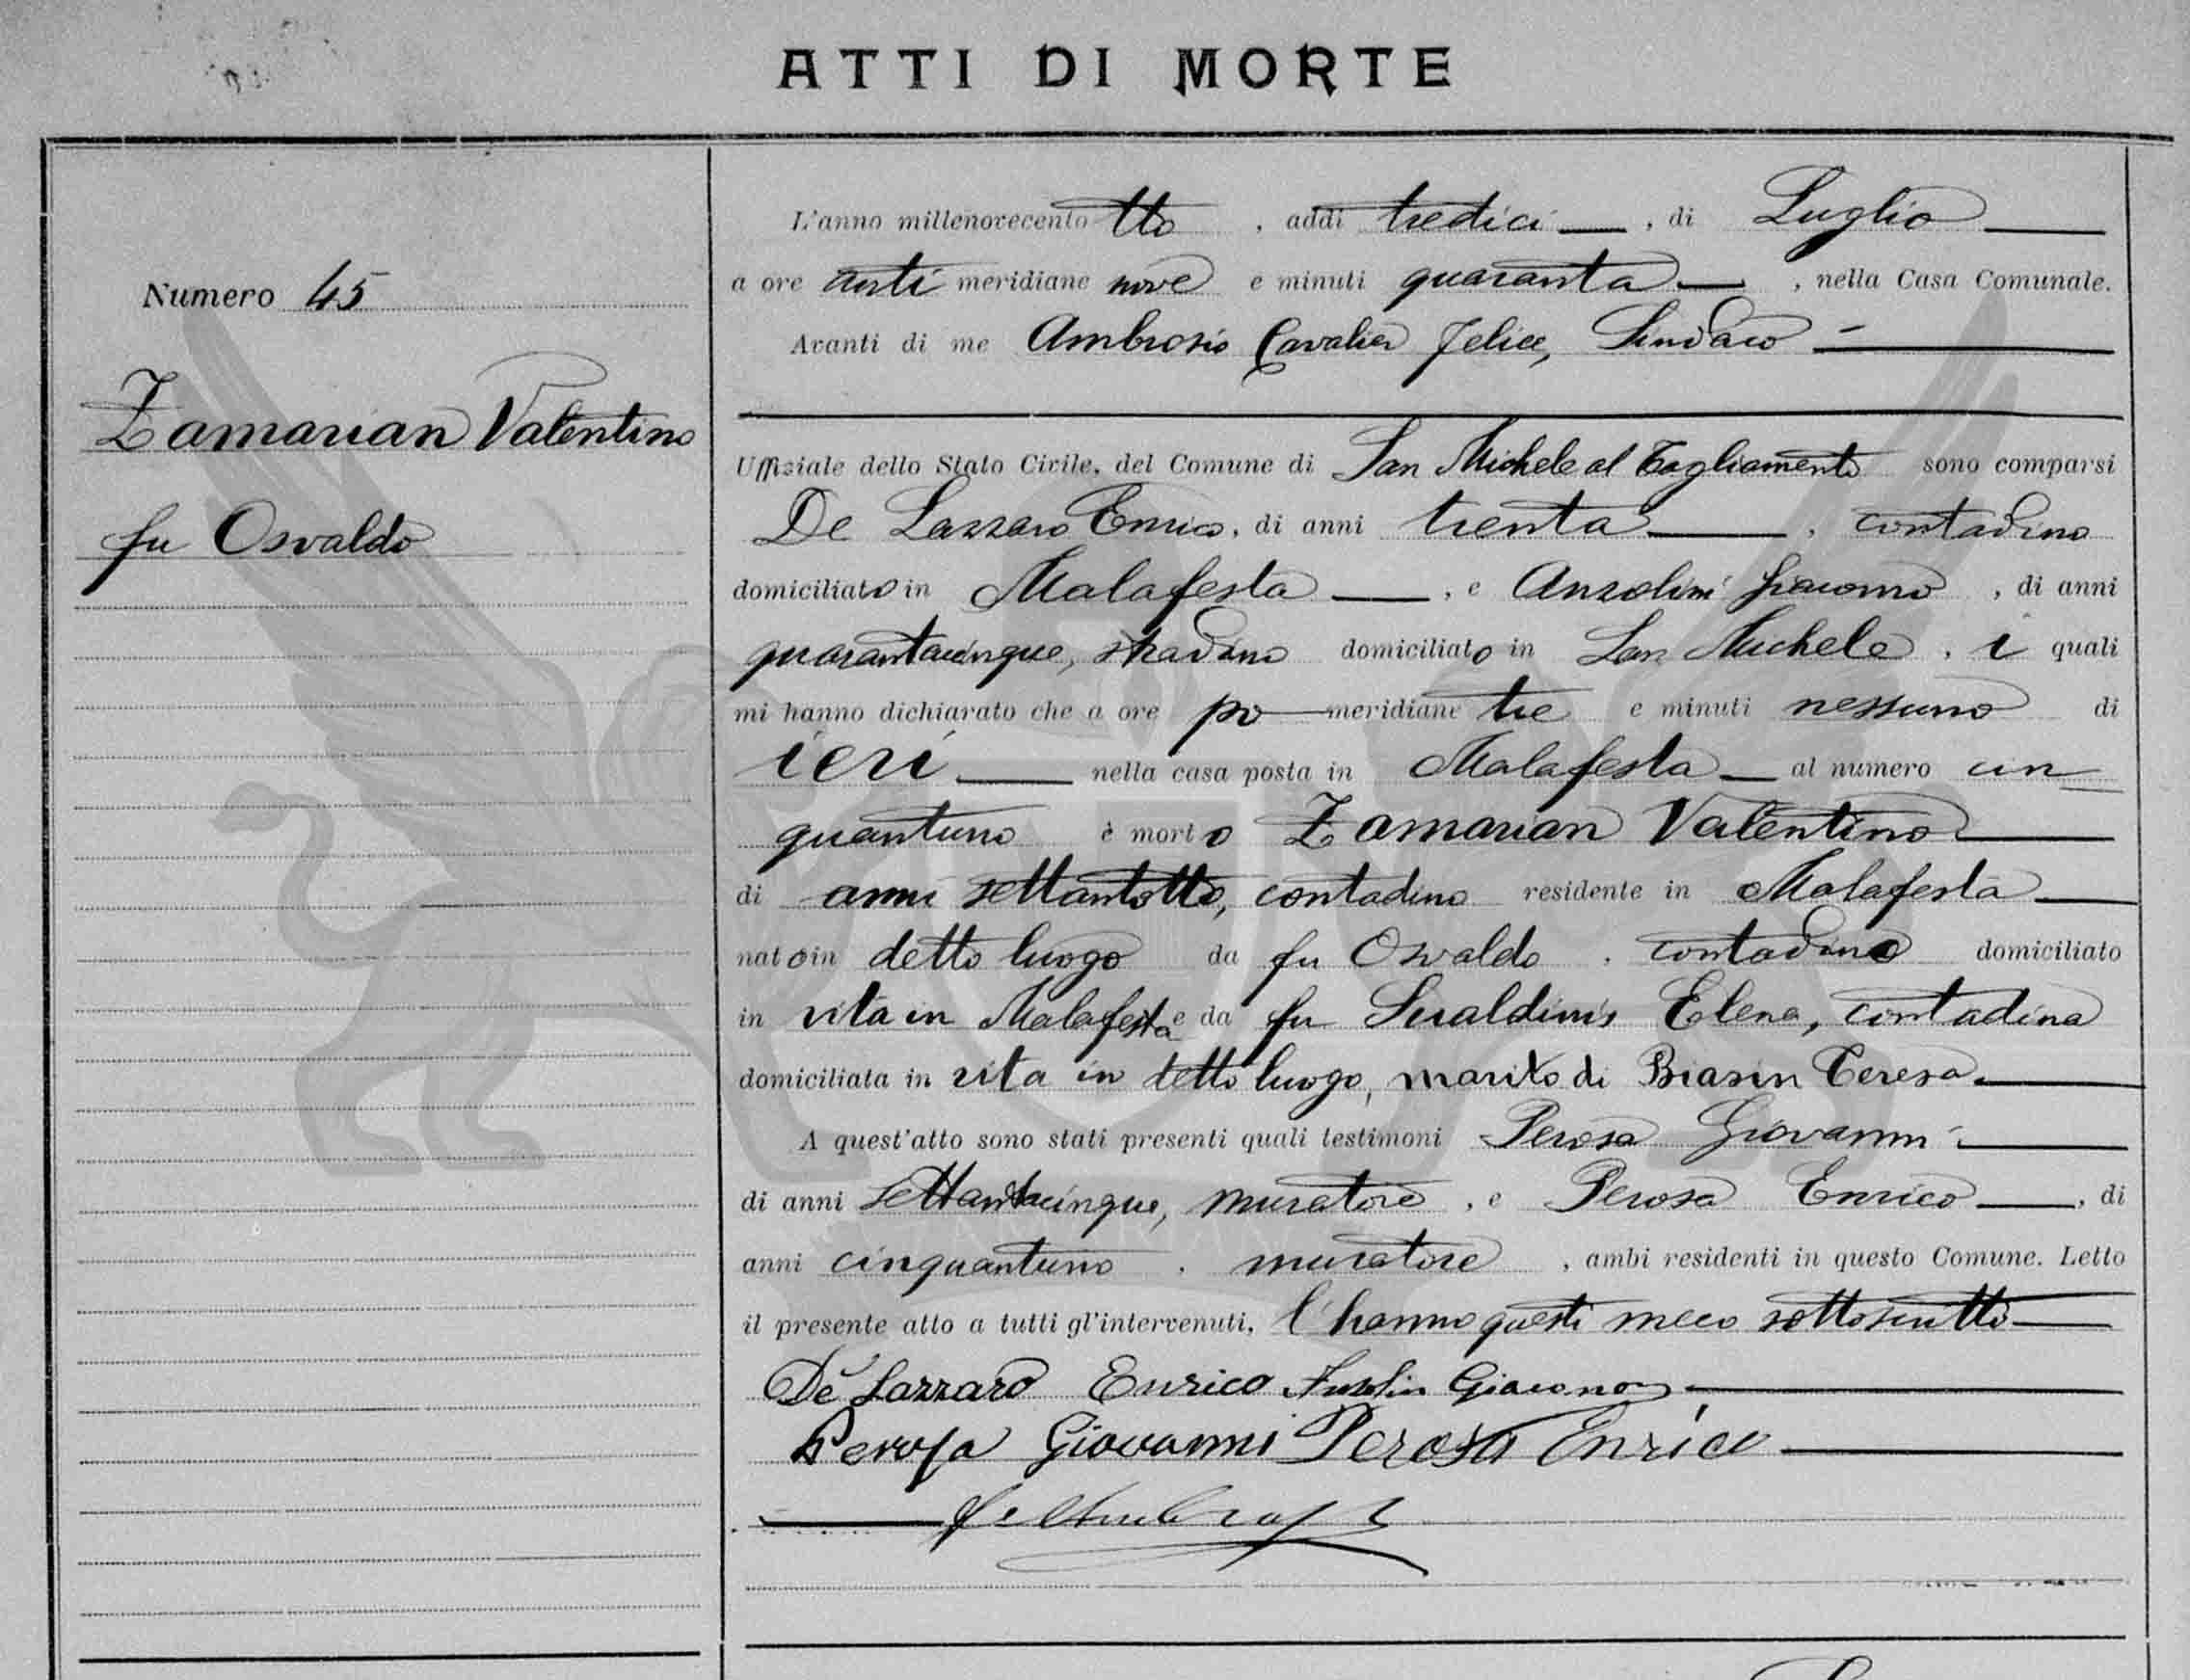 ATTI DI MORTE
Numero 45
Zamarian Valentino
fu Osvaldo
L'anno millenovecento tto, addi tredici, di Luglio
a ore anti meridiane nove e minuti quaranta, nella Casa Comunale.
Avanti di me Ambrosio Cavalier Felice, Sindaco
Uffiziale dello Stato Civile, del Comune di San Michele al Tagliamento sono comparsi
De Lazzaro Enrico, di anni trenta, contadino
domiciliato in Malafesta, e Anzolini Giacomo, di anni
quarantacinque, stradino domiciliato in San Michele, i quali
mi hanno dichiarato che a ore po meridiane tre e minuti nessuno di
ieri nella casa posta in Malafesta al numero cin
quantuno è morto Zamarian Valentino
di anni settantotto, contadino residente in Malafesta
nato in detto luogo da fu Osvaldo, contadino domiciliato
in vita in Malafesta e da fu Elena, contadina
domiciliata in vita in detto luogo, marito di Biasin Teresa.
A quest'atto sono stati presenti quali testimoni Perosa Giovanni
di anni settantacinque, muratore, e Perosa Enrico, di
anni cinquantuno, muratore, ambi residenti in questo Comune. Letto
il presente atto a tutti gl'intervenuti, l'hanno questi meco sottoscritto
De Lazzaro Enrico Anzolin Giacomo
Perosa Giovanni Perosa Enrico